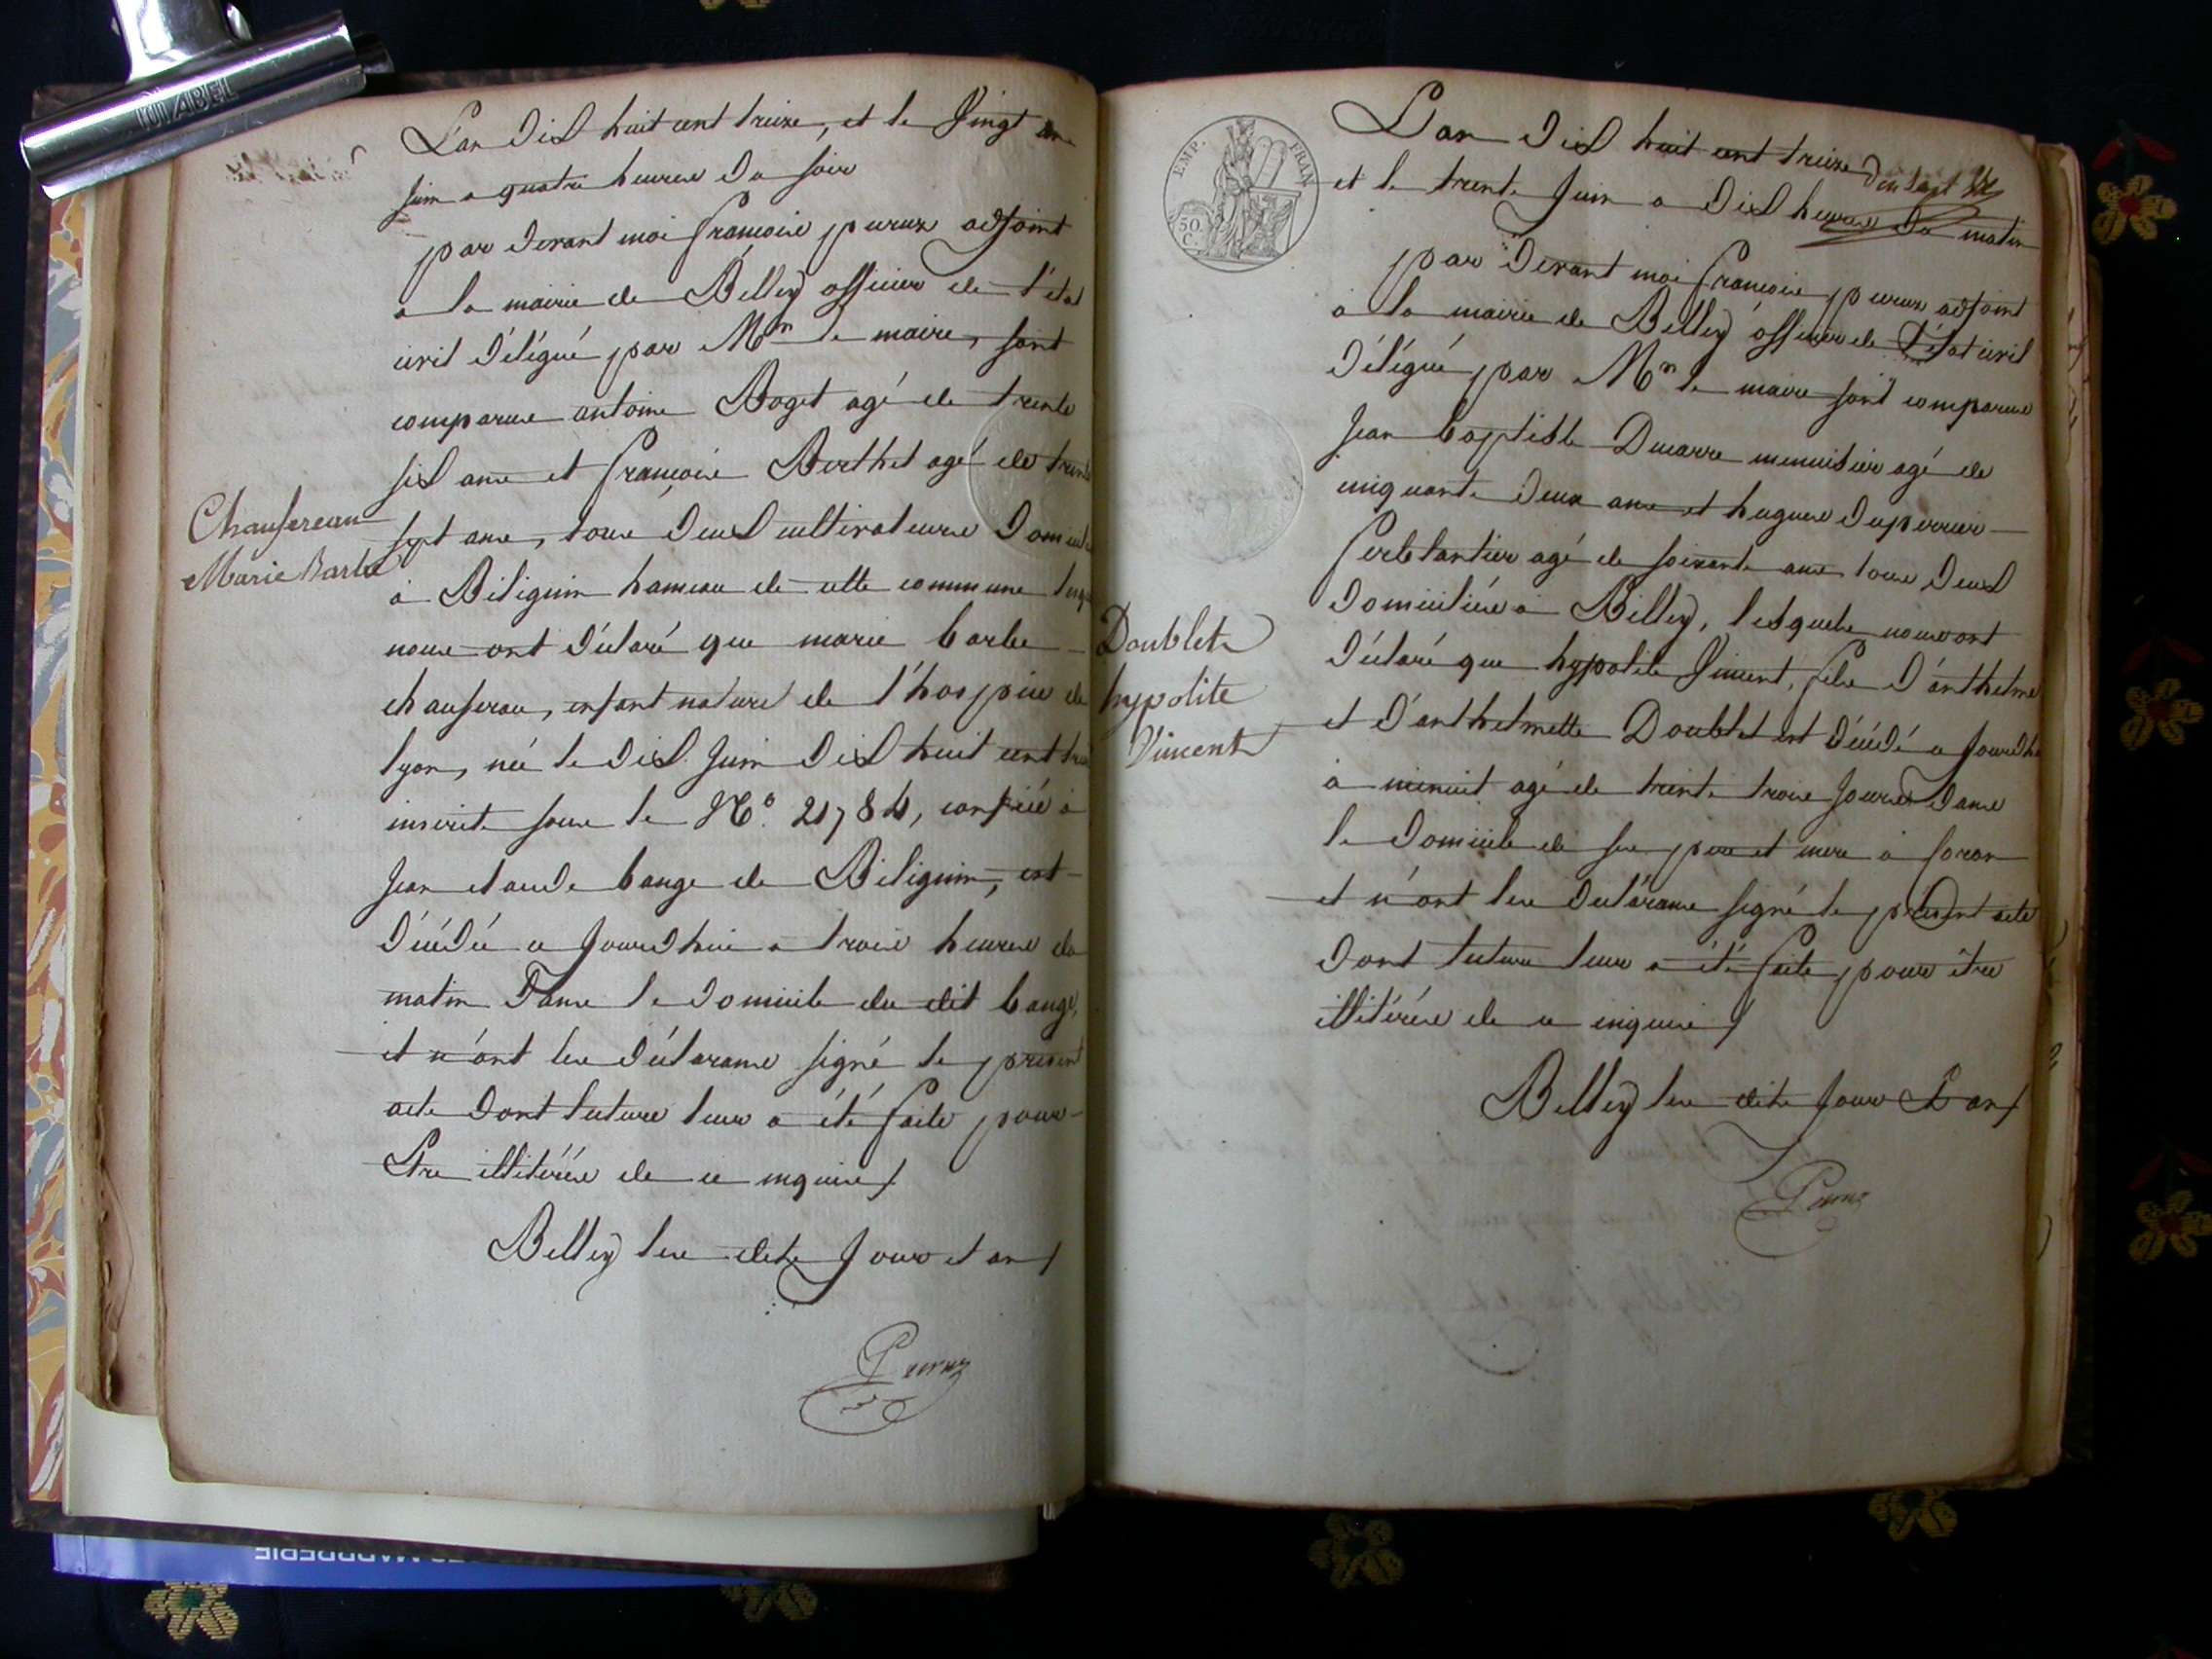 L'an dix huit cent treize, et le Vingt un
juin a quatre heures du soir
par devant moi françois peruz adjoint
a la mairie de Belley officier de l'état
civil délégué par Mr le maire, sont
comparus antoine Boget agé de trente
six ans et françois Berthet agé de trente
sept ans, tous deux cultivateurs Domicil
Chaufereau
Marie Barbe
a Biliguin hameau de cette commune lesq
nous ont déclaré que marie barbe
chauferau, enfant naturel de l'hospice de
lyon, née le dix Juin dix huit cent trei
inscrite sous le No. 21784, confiée a
Jean claude bange de Biliguin, est
décédée a Jourdhui a trois heures du
matin Dans le Domicile du dit bange,
et n'ont les déclarans signé le present
acte Dont lecture leur a été faite pour
Etre illitérés de ce enquis
Belley les dits Jour et an
Peruz
EMP. FRAN.
50 C.
L'an dix huit cent treize
et le trente Juin a dix heures du matin
par devant moi françois peruz adjoint
à la mairie de Belley officier de l'état civil
délégué par Mr le maire sont comparus
Jean baptiste Ducarre menuisier agé de
cinquante deux ans et hugues duperrier
ferblantier agé de soixante ans tous deux
Domiciliés a Belley, lesquels nous ont
Doublet
hypolite
Vincent
déclaré que hypolite Vincent, fils d'anthelme
et d'anthelmette Doublet est décédé a Jourdh
a minuit agé de trente trois jours Dans
le Domicile de ses pere et mere a Coron
et n'ont les déclarans signé le présent acte
Dont lecture leur a été faite pour être
illitérés de ce enquis
Belley les dits Jour & an
Peruz